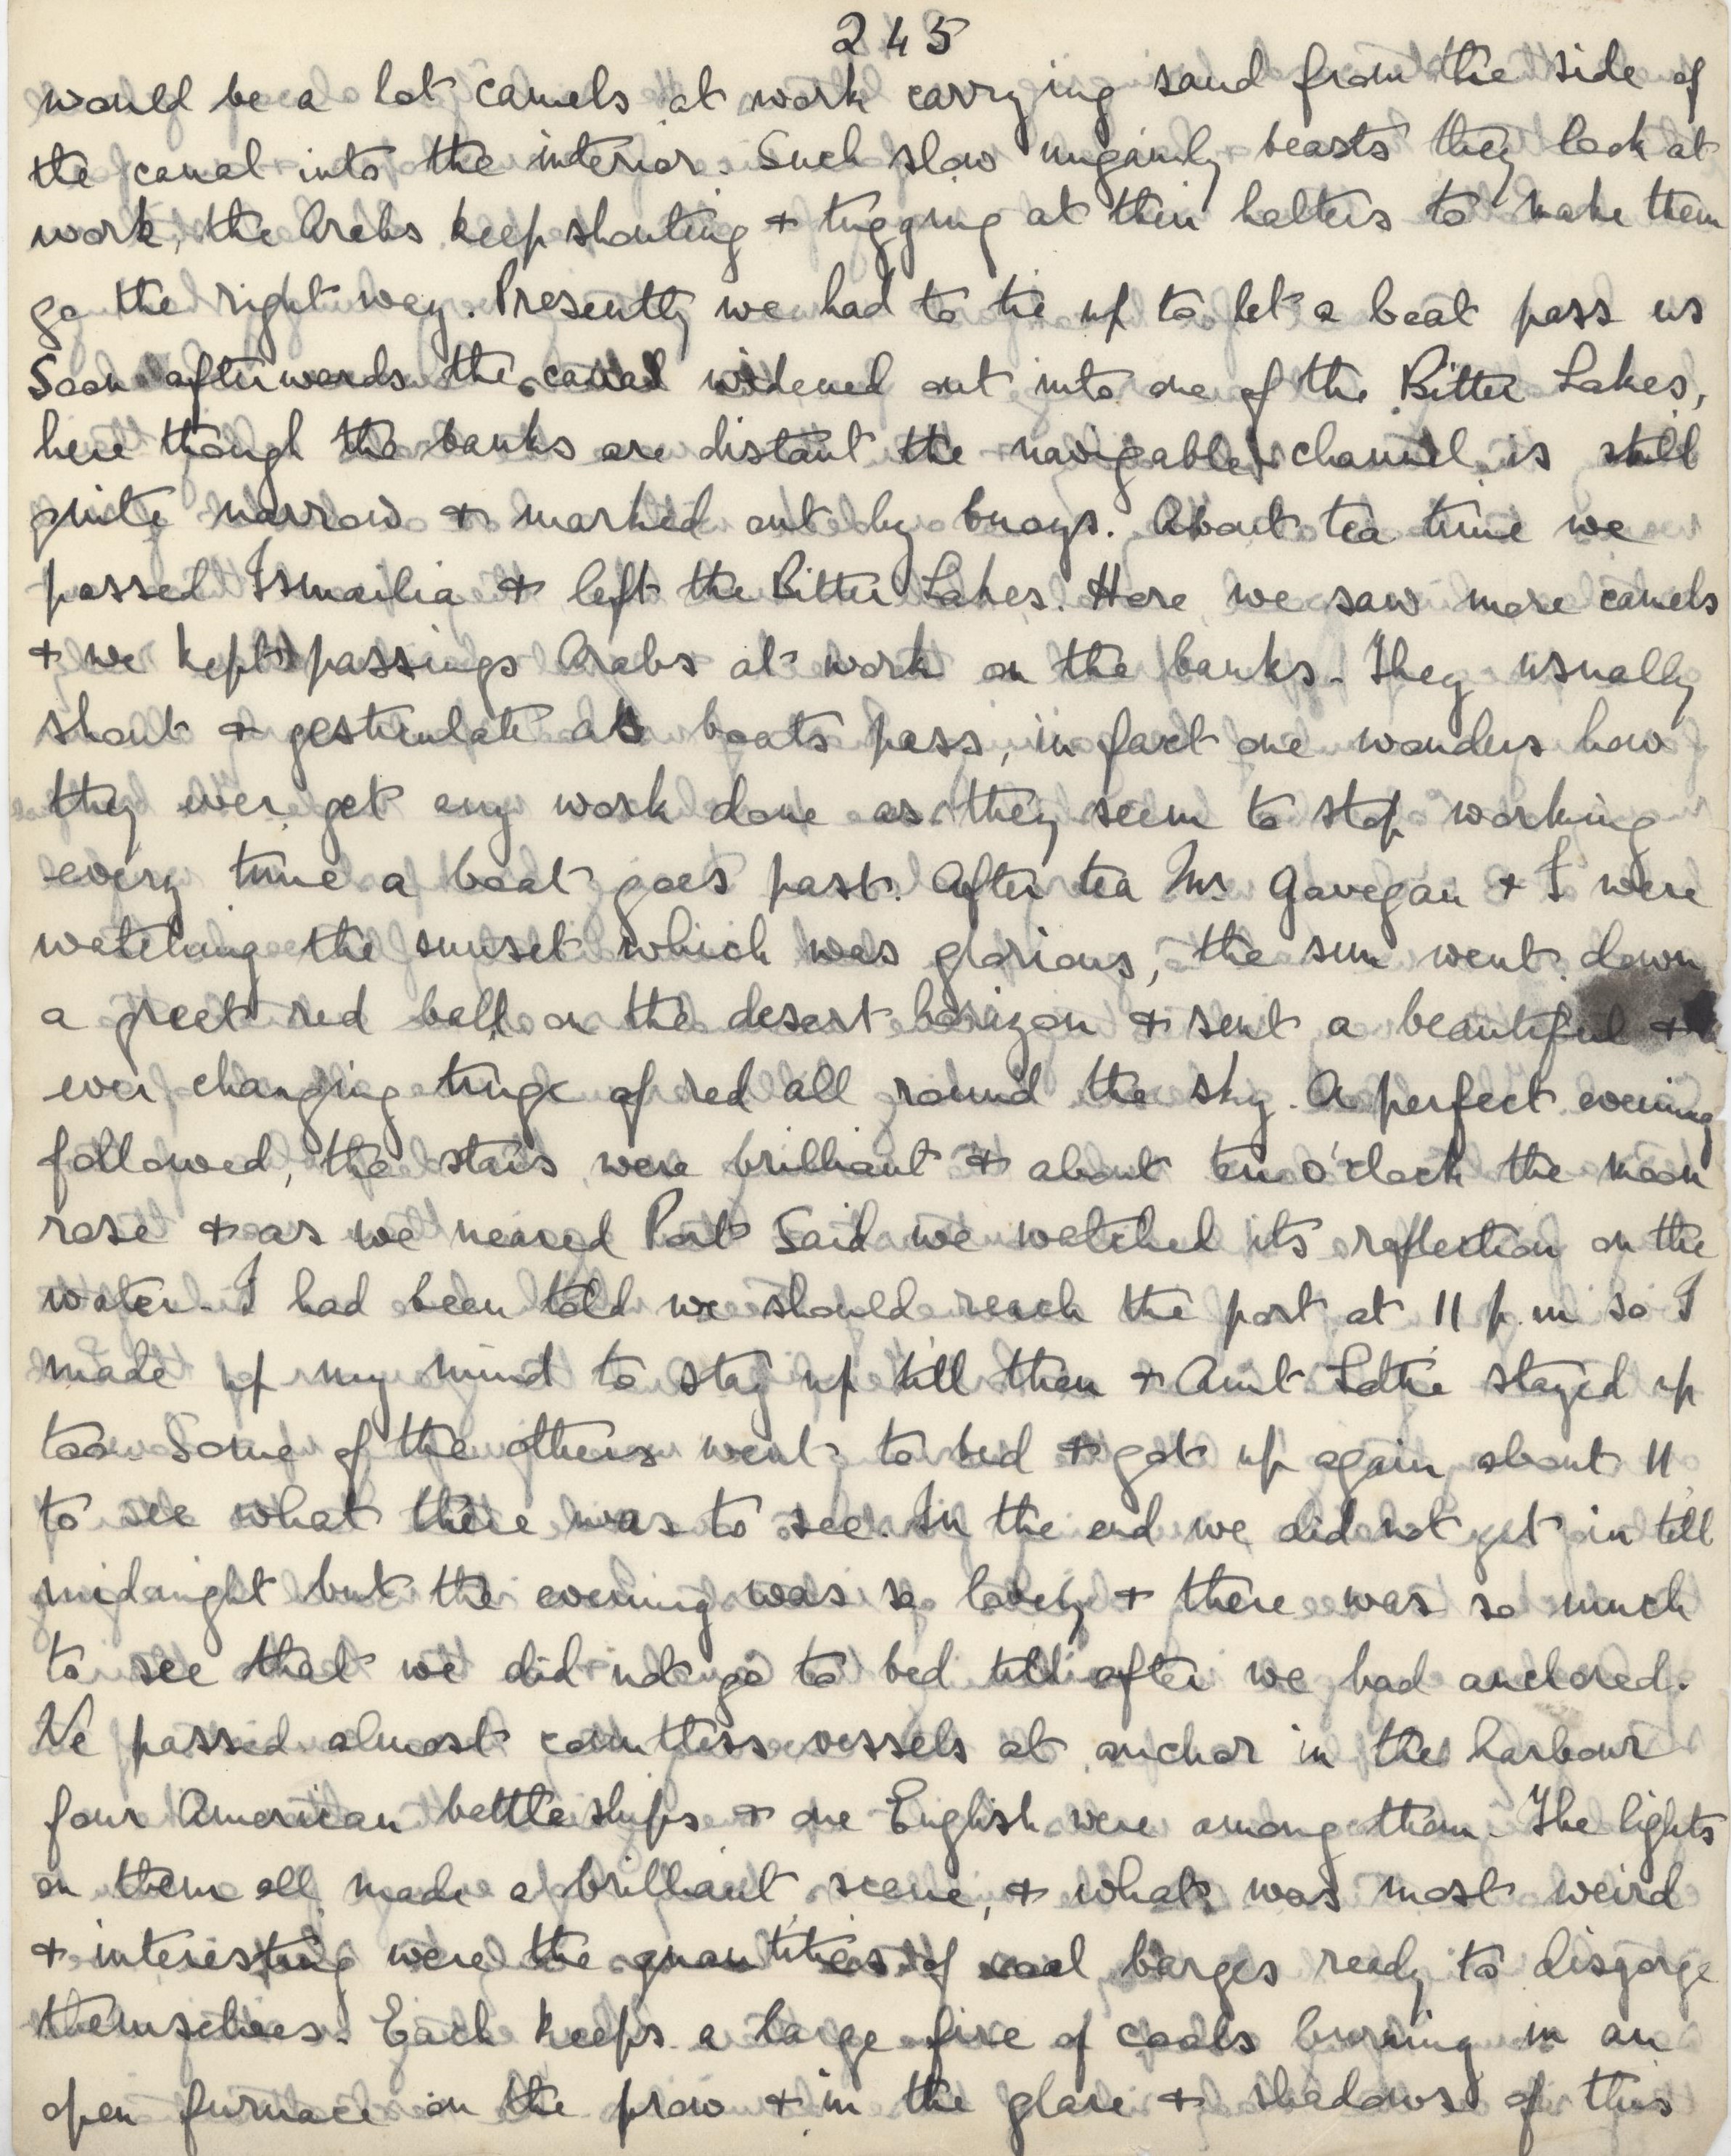 245
would be a lot camels at work carrying sand from the side of
the canal into the interior. Such slow ungainly beasts they look at
work, the Arabs keep shouting + tugging at their halters to make them
go the right way. Presently we had to tie up to let a boat pass us
Soon afterwards the canal widened out into one of the Bitter Lakes,
here though the banks are distant the navigable channel is still
quite narrow + marked out by buoys. About tea time we
passed Ismailia + left the Bitter Lakes. Here we saw more camels
+ we kept passings Arabs at work on the banks. They usually
shout + gesticulate as boats pass, in fact one wonders how
they ever get any work done as they seem to stop working
every time a boat goes past. After tea Mr. Gavegan + I were
watching the sunset which was glorious, the sun went down
a great red ball on the desert horizon + sent a beautiful +
ever changing tinge of red all round the sky. A perfect evening
followed, the stars were brilliant + about ten o'clock the moon
rose + as we neared Port Said we watched its reflection on the
water. I had been told we should reach the port at 11 p.m so I
made up my mind to stay up till then + Aunt Lottie stayed up
too. Some of the others went to bed + got up again about 11
to see what there was to see. In the end we did not get in till
midnight but the evening was so lovely + there was so much
to see that we did not go to bed till after we had anchored.
We passed almost countless vessels at anchor in the harbour
four American battle ships + one English were among them. The lights
on them all made a brilliant scene, + what was most weird
+ interesting were the quantities of coal barges ready to disgorge
themselves. Each keeps a large fire of coals burning in an
open furnace on the prow + in the glare + shadows of this